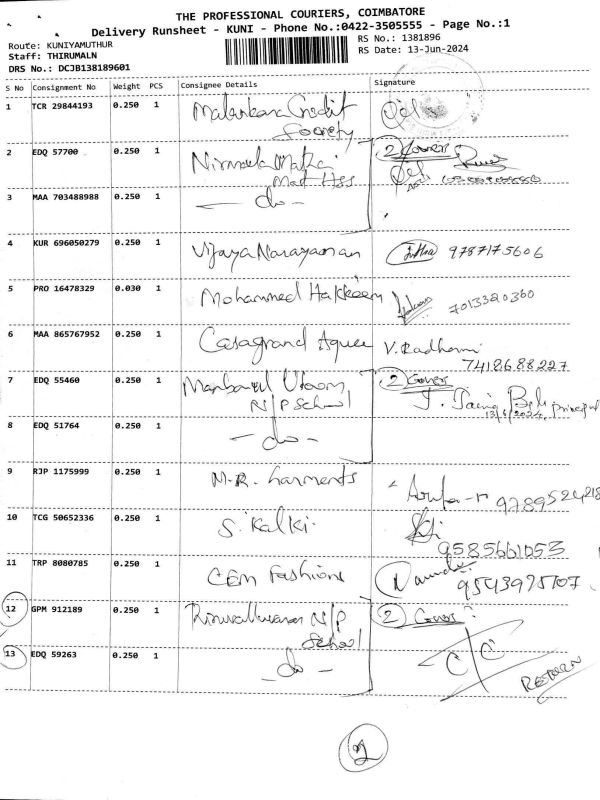 THE PROFESSIONAL COURIERS, COIMBATORE
Delivery Runsheet - KUNI - Phone No.:0422-3505555 - Page No.:1
Route: KUNIYAMUTHUR
RS No.: 1381896
Staff: THIRUMALN
RS Date: 13-Jun-2024
DRS No.: DCJB138189601
S No Consignment No Weight PCS Consignee Details Signature
1 TCR 29844193 0.250 1 Malankara Credit
Society
2 EDQ 57700 0.250 1 Nirmala Matha
Mat Hss
2 Covers
3 MAA 703488988 0.250 1 - do -
4 KUR 696050279 0.250 1 Vijaya Narayanan 9787175606
5 PRO 16478329 0.030 1 Mohammed Hakkeem 7013320360
6 MAA 865767952 0.250 1 Casagrand V. Radhami
7418688227
7 EDQ 55460 0.250 1
N/P School
2 Covers
13/6/2024 principal
8 EDQ 51764 0.250 1 - do -
9 RJP 1175999 0.250 1 M.R. Garments
10 TCG 50652336 0.250 1 S. Kalki
9585661053
11 TRP 8080785 0.250 1 CEM Fashions
9543975707
12 GPM 912189 0.250 1 N/P
School
2 Covers
13 EDQ 59263 0.250 1 - do -
C/C
RETURN
2